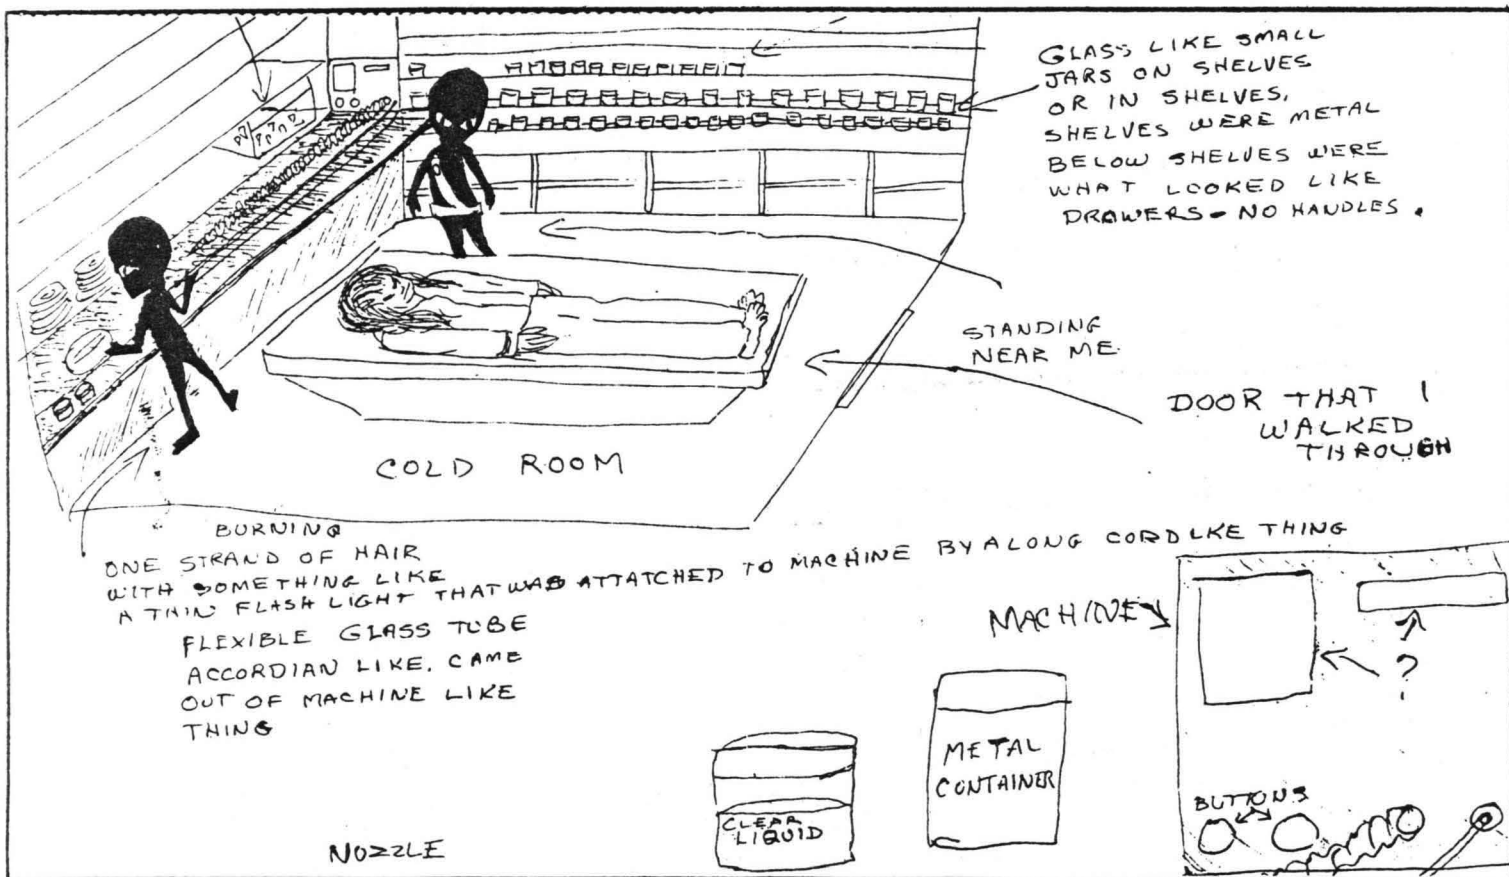 GLASS LIKE SMALL
JARS ON SHELVES
OR IN SHELVES,
SHELVES WERE METAL
BELOW SHELVES WERE
WHAT LOOKED LIKE
DRAWERS - NO HANDLES.
STANDING
NEAR ME.
DOOR THAT I
WALKED
THROUGH
COLD ROOM
BURNING
ONE STRAND OF HAIR
WITH SOMETHING LIKE
A THIN FLASH LIGHT THAT WAS ATTATCHED TO MACHINE BY A LONG CORDLKE THING
FLEXIBLE GLASS TUBE
ACCORDIAN LIKE. CAME
OUT OF MACHINE LIKE
THING
MACHINE
?
METAL
CONTAINER
CLEAR
LIQUID
BUTTONS
NOZZLE